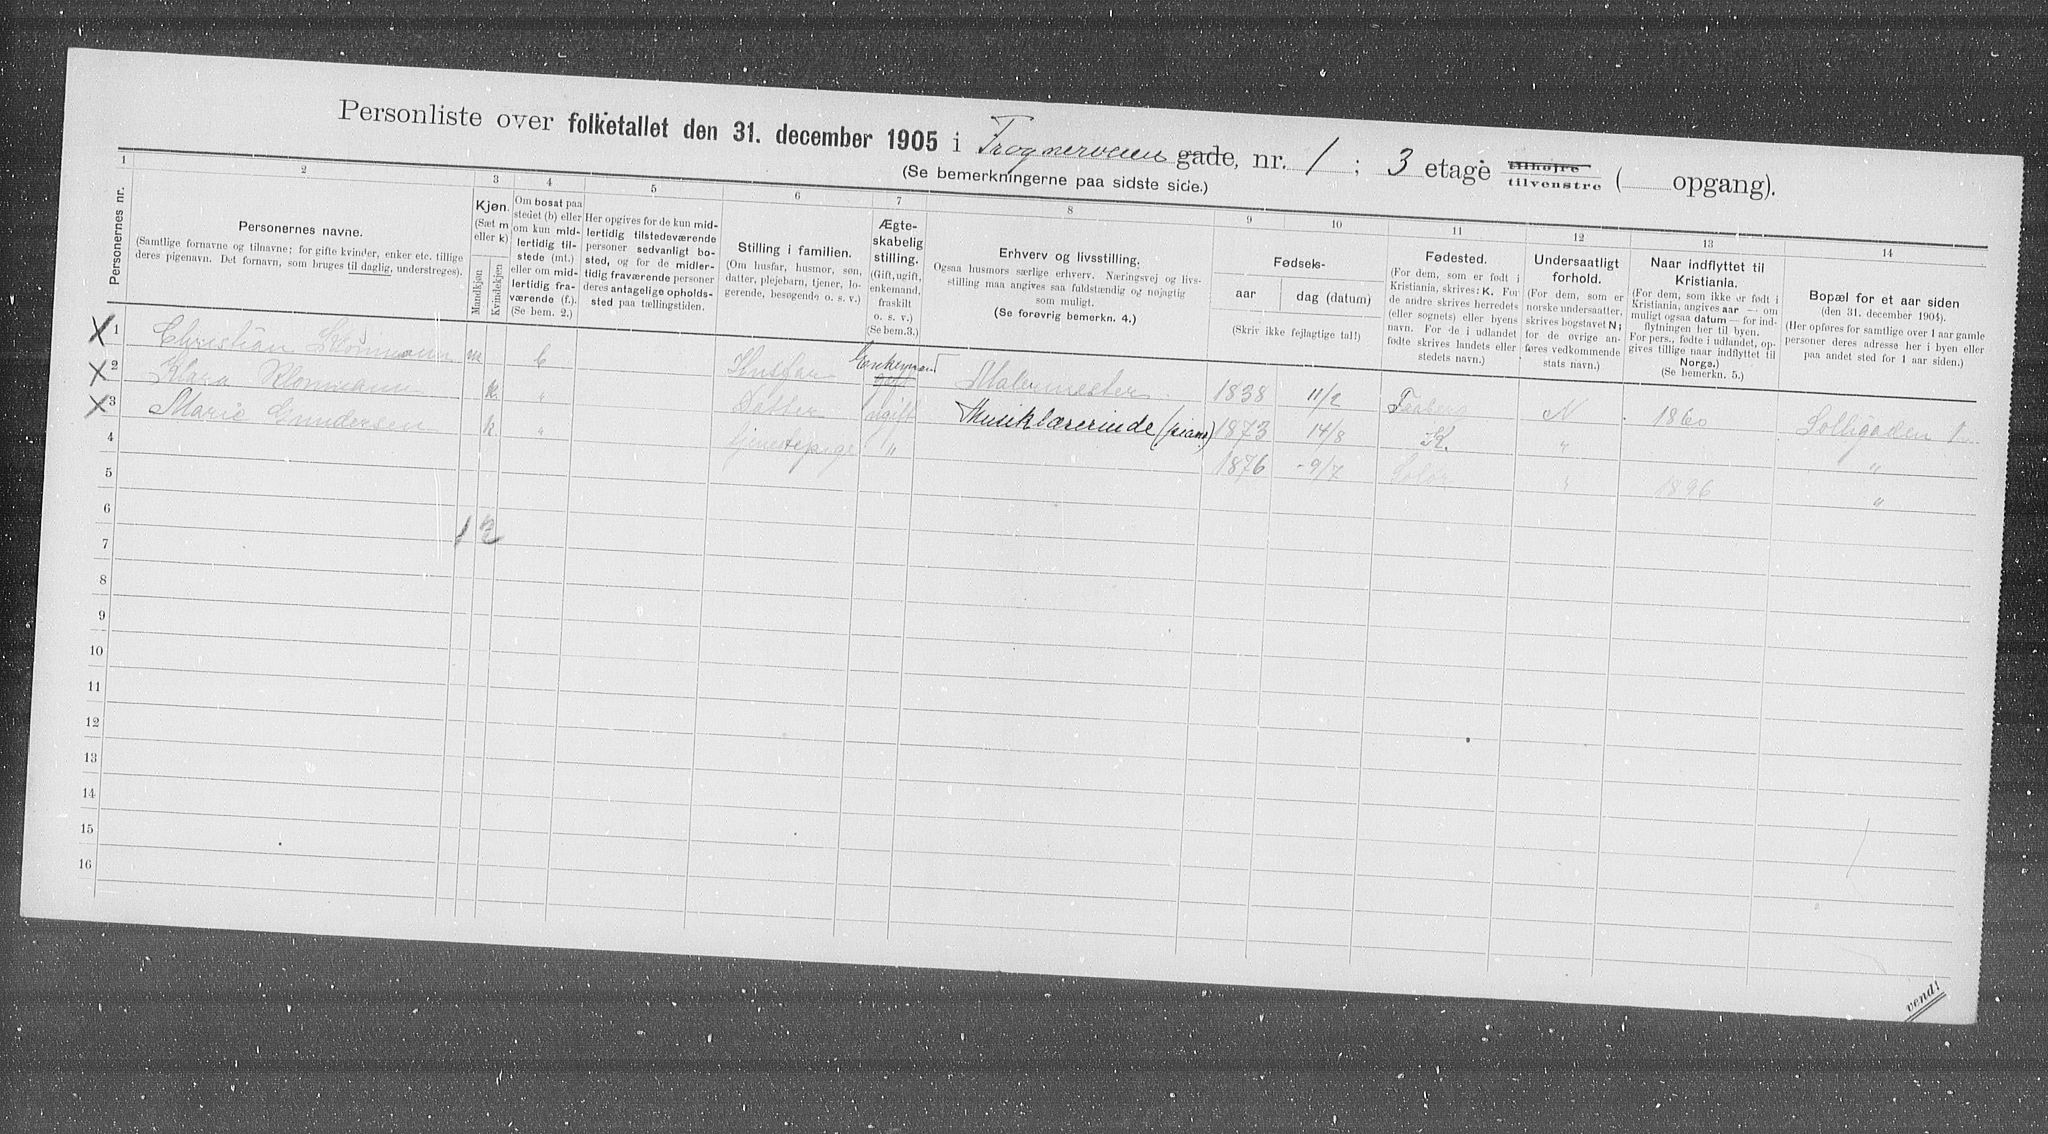 Personliste over folketallet den 31. december 1905 i Trognerveien gade, nr. 1 ; 3 etage tilhøjre tilvenstre ( opgang).
(Se bemerkningerne paa sidste side.)
1 2 3 4 5 6 7 8 9 10 11 12 13 14
Personernes nr.
Personernes navne.
(Samtlige fornavne og tilnavne; for gifte kvinder, enker etc. tillige
deres pigenavn. Det fornavn, som bruges til daglig, understreges).
Kjøn.
(Sæt m
eller k)
Mandkjøn
Kvindekjøn
Om bosat paa
stedet (b) eller
om kun mid-
lertidig til-
stede (mt.)
eller om mid-
lertidig fra-
værende (f.).
(Se bem. 2.)
Her opgives for de kun mid-
lertidig tilstedeværende
personer sedvanligt bo-
sted, og for de midler-
tidig fraværende personer
deres antagelige opholds-
sted paa tællingstiden.
Stilling i familien.
(Om husfar, husmor, søn,
datter, plejebarn, tjener, lo-
gerende, besøgende o. s. v.)
Ægte-
skabelig
stilling.
(Gift, ugift,
enkemand,
fraskilt
o. s. v.)
(Se bem.3.)
Erhverv og livsstilling.
Ogsaa husmors særlige erhverv. Næringsvej og livs-
stilling maa angives saa fuldstændig og nøjagtig
som muligt.
(Se forøvrig bemerkn. 4.)
Fødsels-
aar dag (datum)
(Skriv ikke fejlagtige tal!)
Fødested.
(For dem, som er født i
Kristiania, skrives: K. For
de andre skrives herredets
(eller sognets) eller byens
navn. For de i udlandet
fødte skrives landets eller
stedets navn.)
Undersaatligt
forhold.
(For dem, som er
norske undersaatter,
skrives bogstavet N;
for de øvrige an-
føres vedkommende
stats navn.)
Naar indflyttet til
Kristiania.
(For dem, som ikke er født i
Kristiania, angives aar — om
muligt ogsaa datum — for ind-
flytningen her til byen.
For pers., fødte i udlandet, op-
gives tillige naar indflyttet til
Norge.)
(Se bemerkn. 5.)
Bopæl for et aar siden
(den 31. december 1904).
(Her opføres for samtlige over 1 aar gamle
personer deres adresse her i byen eller
paa andet sted for 1 aar siden.)
X 1 Christian m b Husfar Enkemand gift Malermester 1838 11/2 Faaberg N 1860 Solligaden 1
X 2 Klara k. " Datter ugift Musiklærerinde (piano) 1873 14/8 K. " "
X 3 Marie Gundersen k " tjenestepige " 1876 9/7 Solør " 1896 "
4
5
6
1 2
7
8
9
10
11
12
13
14
15
16
vend!